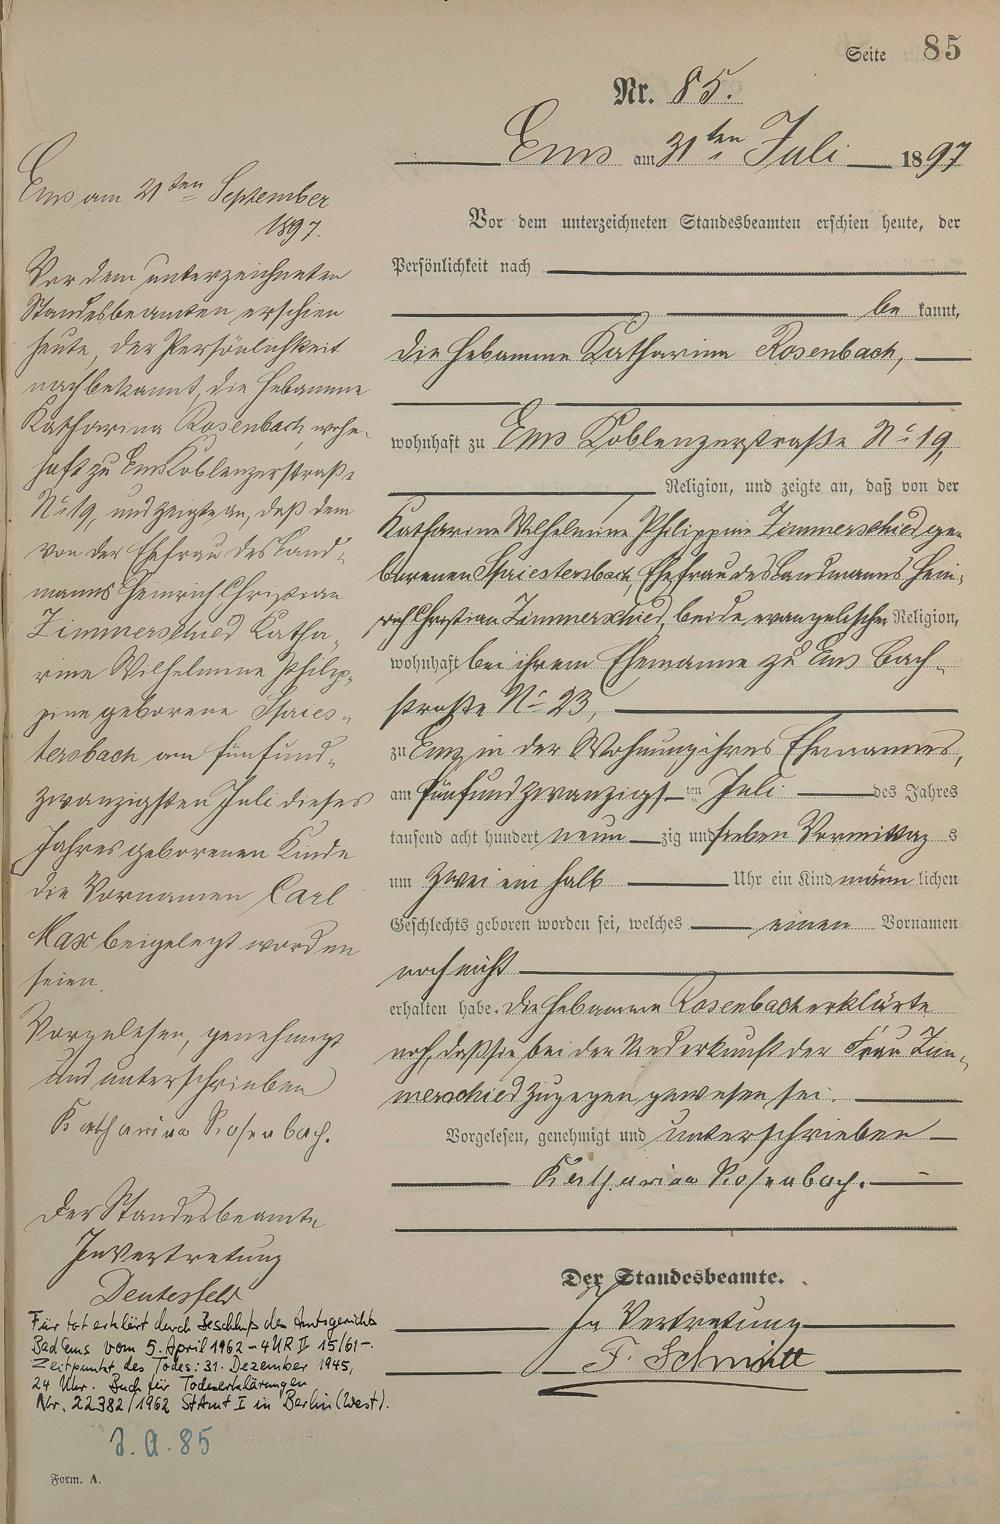 Seite 85
Nr. 85.
Ems am 31ten Juli 1897
Vor dem unterzeichneten Standesbeamten erschien heute, der
Persönlichkeit nach
be kannt,
die Hebamme Katharina Rosenbach,
wohnhaft zu Ems Koblenzerstraße No 19,
Religion, und zeigte an, daß von der
Katharine Wilhelmine Philippine Zimmerschied ge-
borenen Spriestersbach, Ehefrau des Landmanns Hein-
rich Christian Zimmerschied, beide evangelischer Religion,
wohnhaft bei ihrem Ehemanne zu Ems Bach-
straße No 23,
zu Ems, in der Wohnung ihres Ehemannes,
am fünfundzwanzigsten Juli des Jahres
tausend acht hundert neunzig und sieben Vormittags
um zwei ein halb Uhr ein Kind männlichen
Geschlechts geboren worden sei, welches einen Vornamen
noch nicht
erhalten habe. Die Hebamme Rosenbach erklärte
noch, daß sie bei der Niederkunft der Frau Zim-
merschied zugegen gewesen sei.
Vorgelesen, genehmigt und unterschrieben
Katharina Rosenbach.
Der Standesbeamte.
In Vertretung
F. Schmitt
Ems am 21ten September
1897.
Vor dem unterzeichneten
Standesbeamten erschien
heute, der Persönlichkeit
nach bekannt, die Hebamme
Katharina Rosenbach, wohn-
haft zu Ems Koblenzerstraße
No 19, und zeigte an, daß dem
von der Ehefrau des Land-
manns Heinrich Christian
Zimmerschied Katha-
rine Wilhelmine Philip-
pine geborene Spries-
tersbach am fünfund-
zwanzigsten Juli dieses
Jahres geborenen Kinde
die Vornamen Carl
Max beigelegt worden
seien.
Vorgelesen, genehmigt
und unterschrieben
Katharina Rosenbach.
Der Standesbeamte
In Vertretung
Für tot erklärt durch Beschluß des Amtsgerichts
Bad Ems vom 5. April 1962 - 4 UR II 15/61 -.
Zeitpunkt des Todes: 31. Dezember 1945,
24 Uhr. Buch für Todeserklärungen
Nr. 22382/1962 StAmt I in Berlin (West).
85
Form. A.